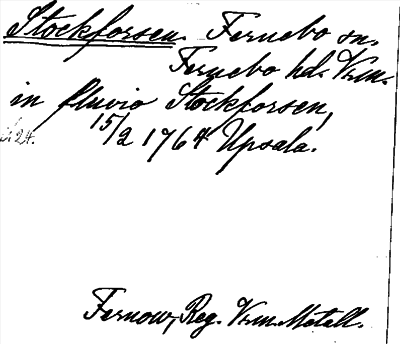 Stockforsen. Fernebo sn.
Fernebo hd. Vrm.
in fluvio Stockforsen,
15/2 1764 Upsala.
Fernow, Reg. Vrm. Metall.